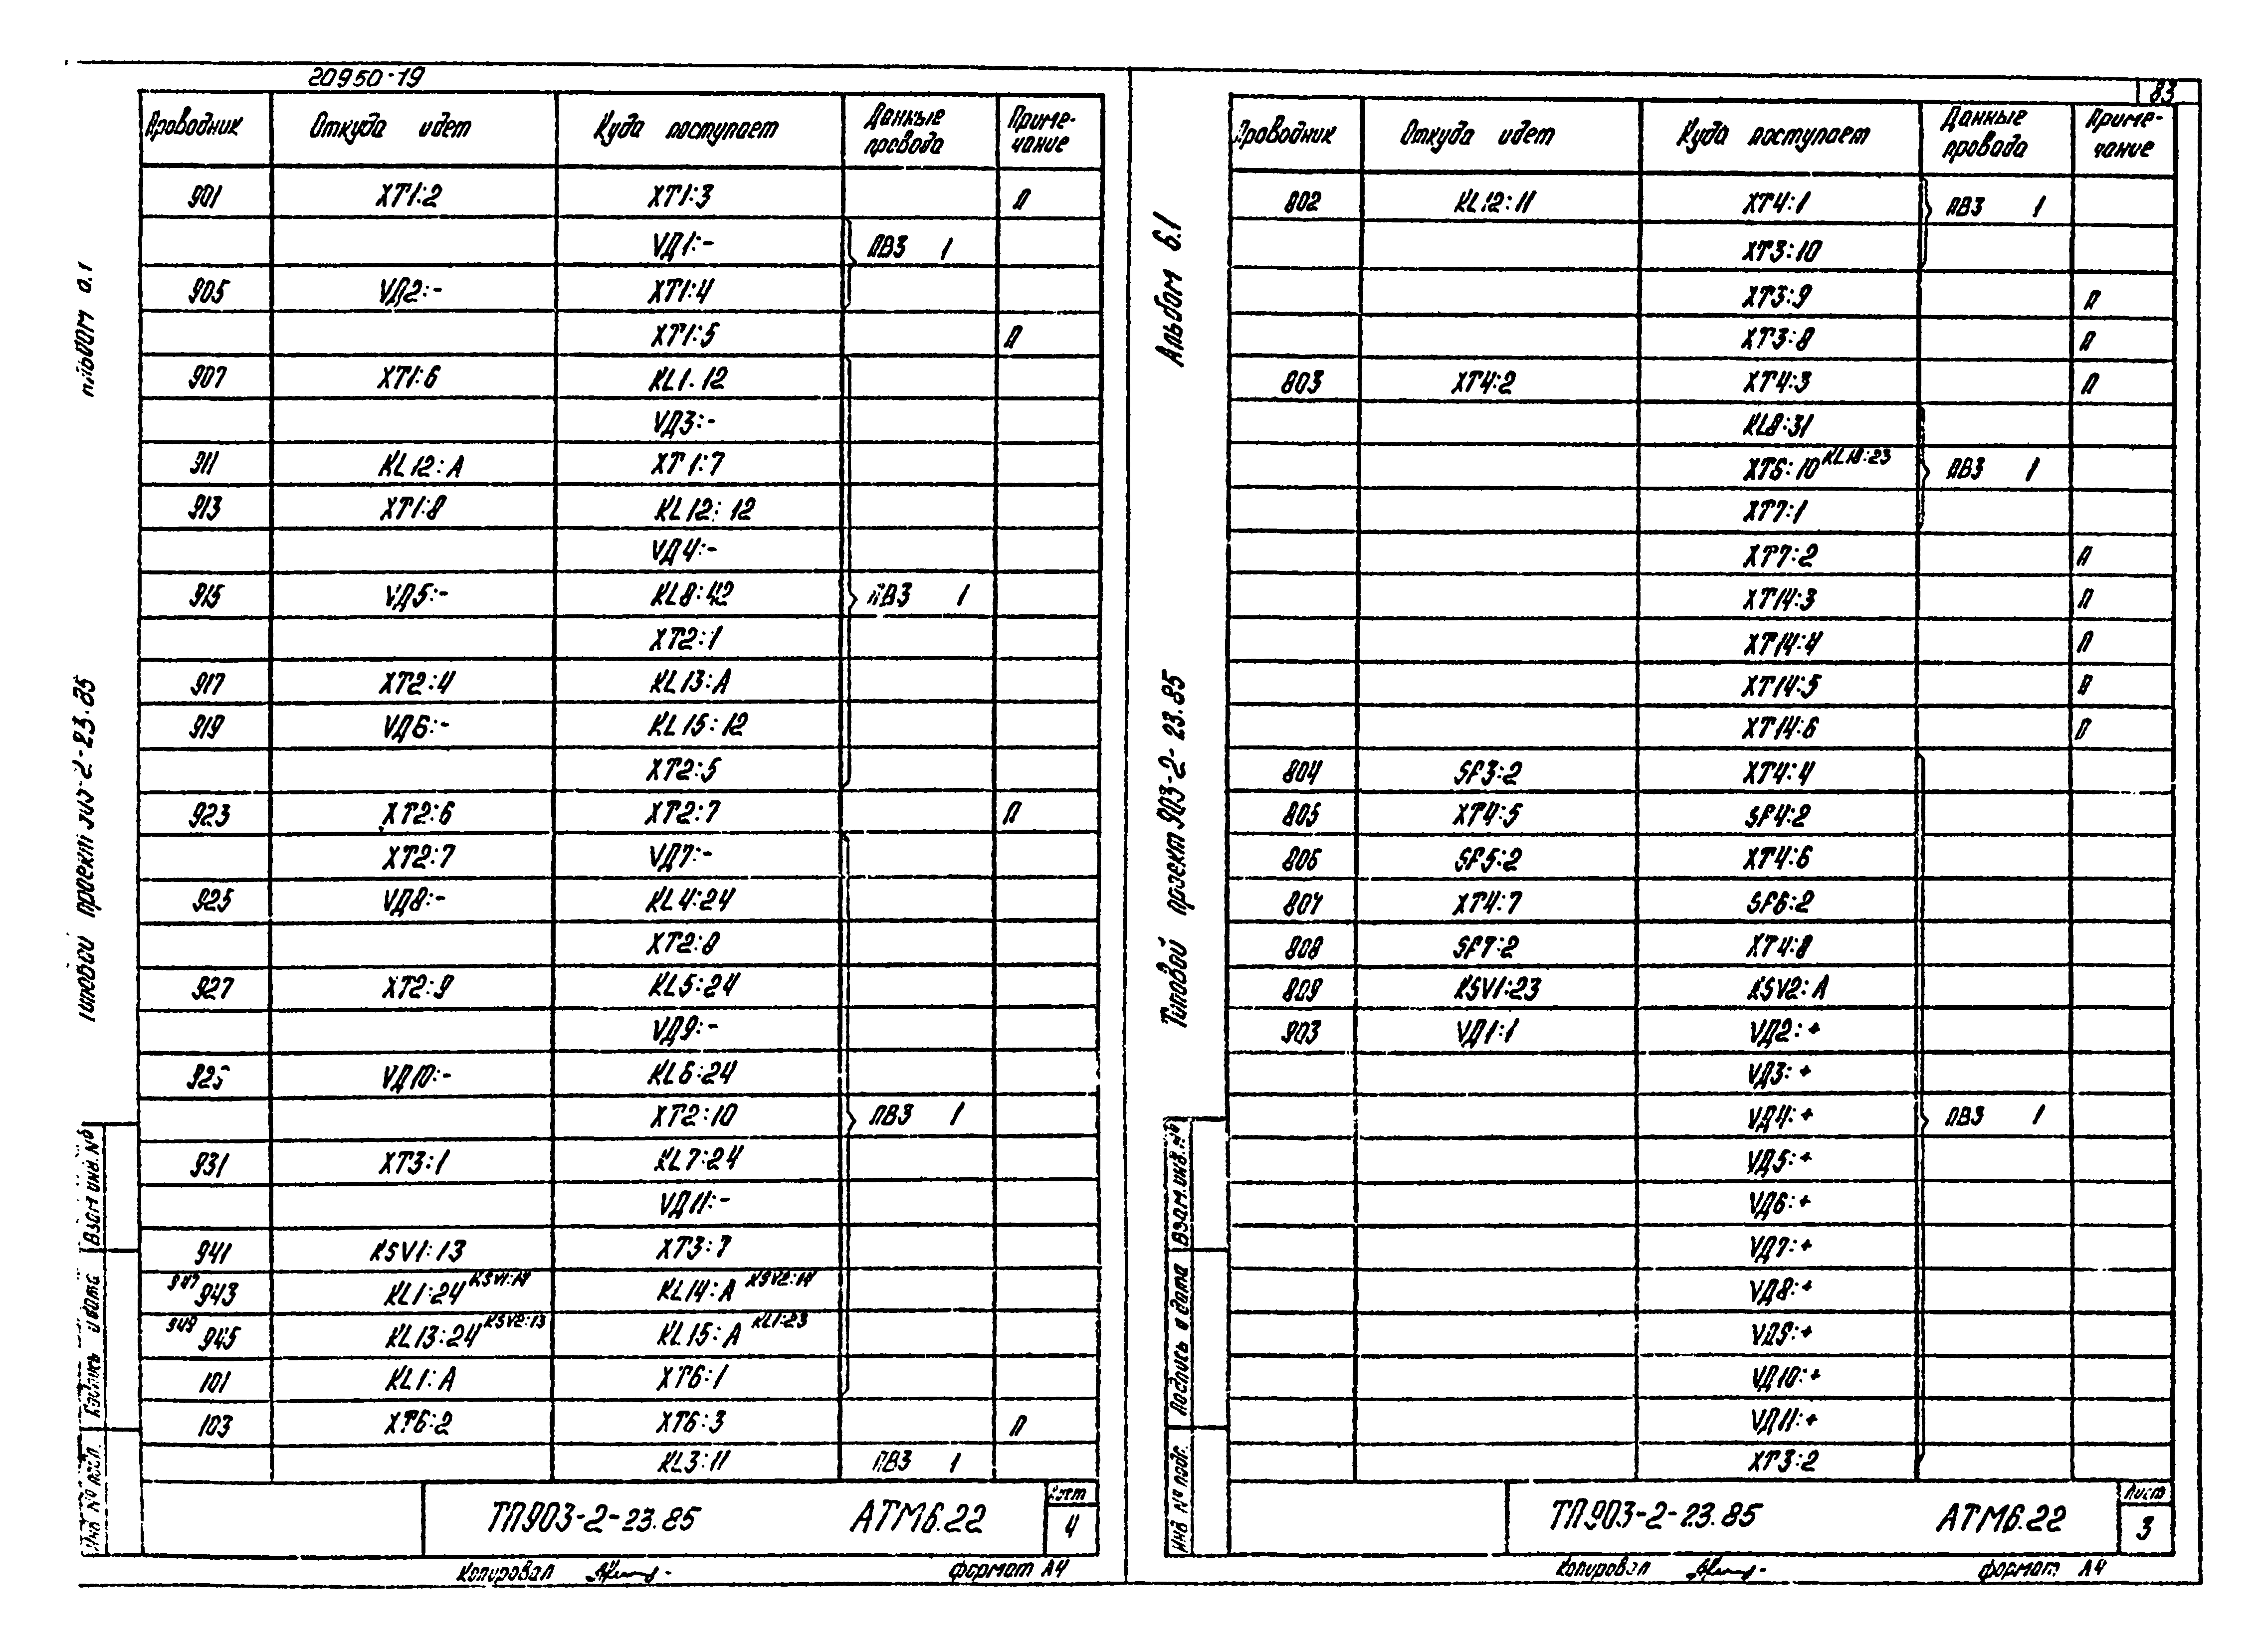 20950-19
83
Проводник Откуда идет Куда поступает Данные провода Приме-чание
901 XT1:2 XT1:3 П
VД1:- ПВ3 1
905 VД2:- XT1:4
XT1:5 П
907 XT1:6 KL1.12
VД3:-
911 KL12:A XT1:7
913 XT1:8 KL12:12
VД4:-
915 VД5:- KL8:42 ПВ3 1
XT2:1
917 XT2:4 KL13:A
919 VД6:- KL15:12
XT2:5
923 XT2:6 XT2:7 П
XT2:7 VД7:-
925 VД8:- KL4:24
XT2:8
927 XT2:9 KL5:24
VД9:-
VД10:- KL6:24
XT2:10 ПВ3 1
931 XT3:1 KL7:24
VД11:-
941 KSV1:13 XT3:7
947 943 KL1:24 KSV1:14 KL14:A KSV2:14
949 945 KL13:24 KSV2:13 KL15:A KL1:23
101 KL1:A XT6:1
103 XT6:2 XT6:3 П
KL3:11 ПВ3 1
ТП903-2-23.85 АТМ6.22 Лист 4
Копировал
формат А4
Альбом 6.1
Типовой проект 903-2-23.85
Взам инв. №
Подпись и дата
Инв № подл.
Проводник Откуда идет Куда поступает Данные провода Приме-чание
802 KL12:11 XT4:1 ПВ3 1
XT3:10
XT3:9 П
XT3:8 П
803 XT4:2 XT4:3 П
KL8:31
XT6:10 KL18:23 ПВ3 1
XT7:1
XT7:2 П
XT14:3 П
XT14:4 П
XT14:5 П
XT14:6 П
804 SF3:2 XT4:4
805 XT4:5 SF4:2
806 SF5:2 XT4:6
807 XT4:7 SF6:2
808 SF7:2 XT4:8
809 KSV1:23 KSV2:A
903 VД1:1 VД2:+
VД3:+
VД4:+ ПВ3 1
VД5:+
VД6:+
VД7:+
VД8:+
VД9:+
VД10:+
VД11:+
XT3:2
ТП903-2-23.85 АТМ6.22 Лист 3
Копировал
формат А4
Альбом 6.1
Типовой проект 903-2-23.85
Взам.инв.№
Подпись и дата
Инв № подл.